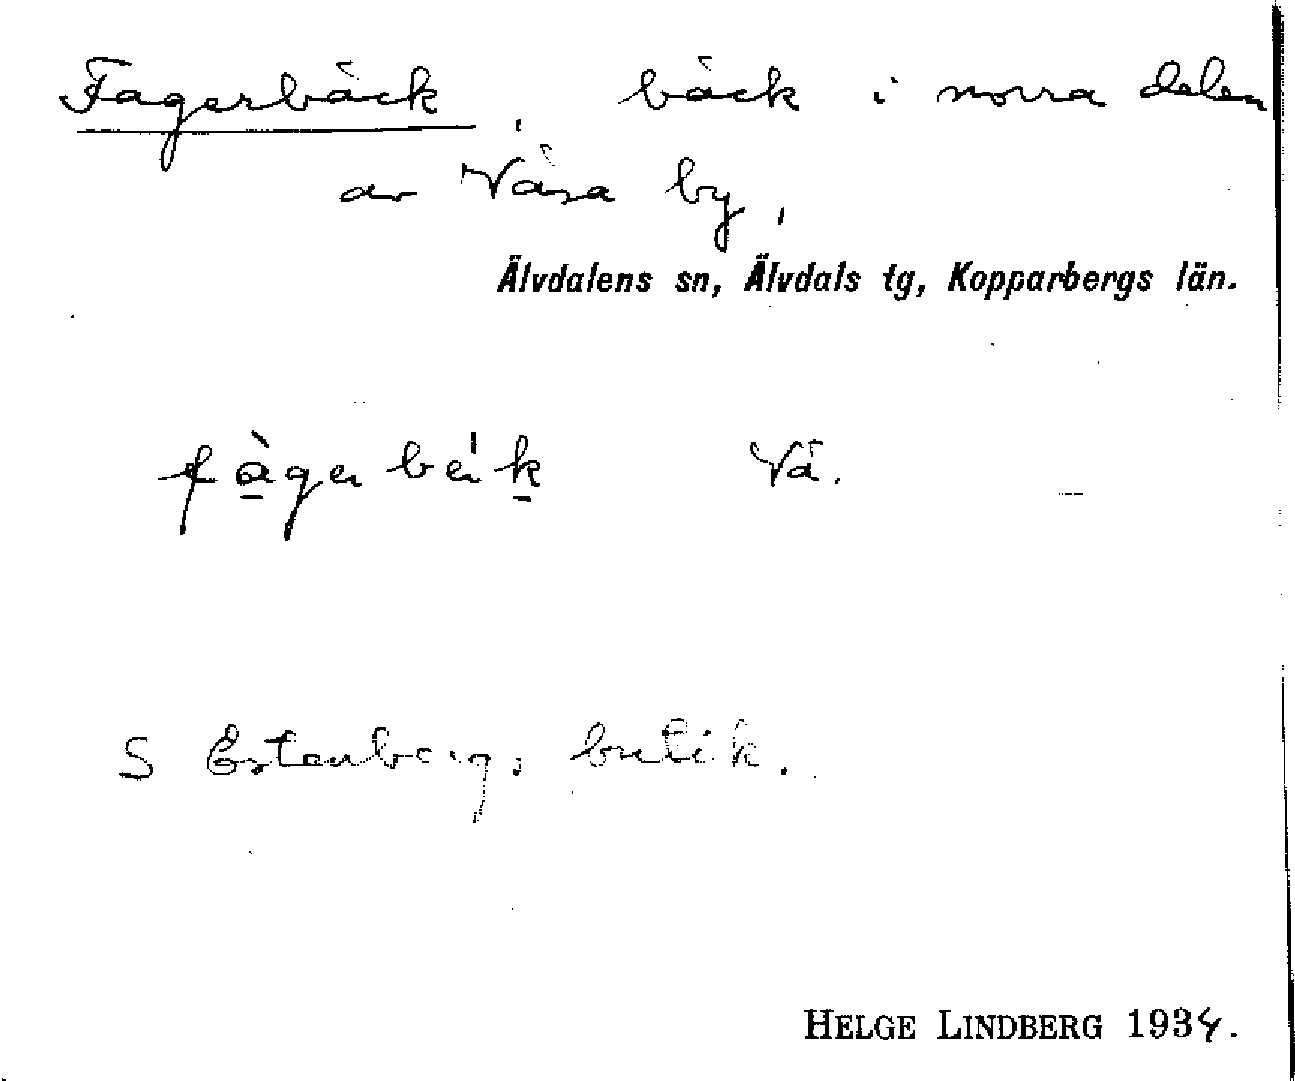 Fagerbäck, bäck i norra delen
av Våsa by,
Älvdalens sn, Älvdals tg, Kopparbergs län.
fàger be̍k Vå.
S Estenbergs butik.
HELGE LINDBERG 1934.